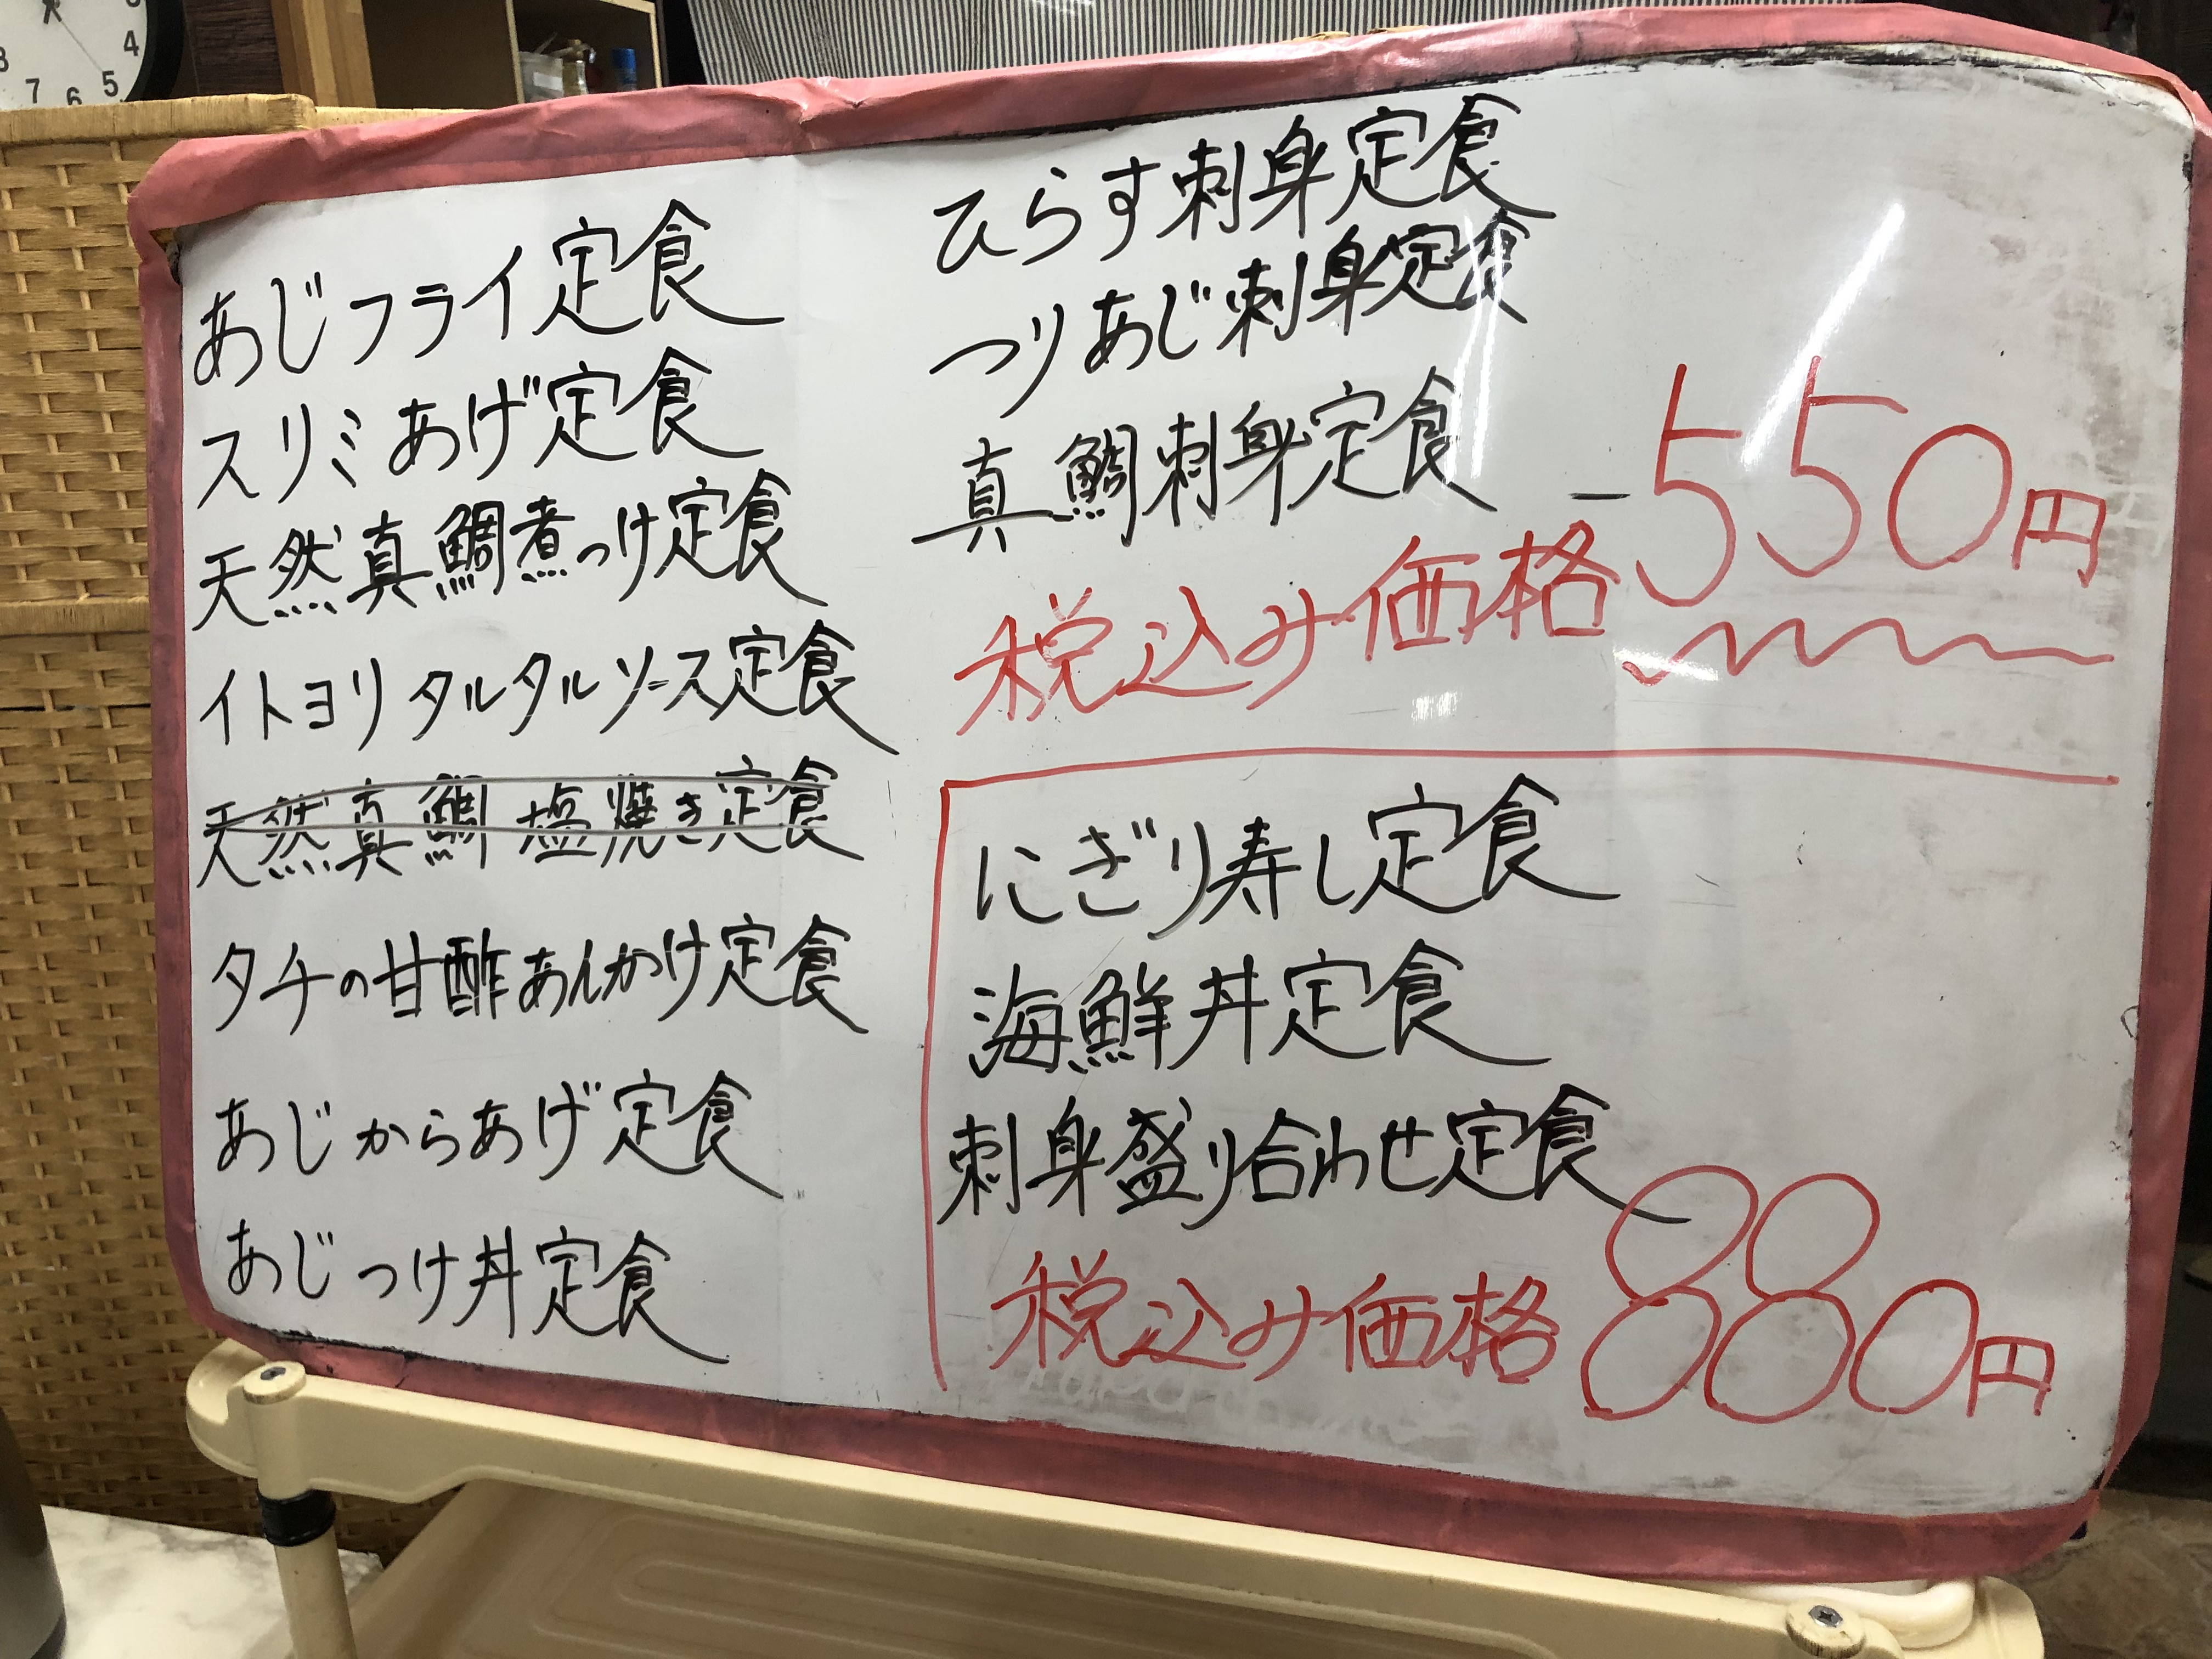 あじフライ定食
スリミあげ定食
天然真鯛煮つけ定食
イトヨリタルタルソース定食
天然真鯛塩焼き定食
タチの甘酢あんかけ定食
あじからあげ定食
あじつけ丼定食
ひらす刺身定食
つりあじ刺身定食
真鯛刺身定食
税込み価格 550円
にぎり寿し定食
海鮮丼定食
刺身盛り合わせ定食
税込み価格 880円
4
5
6
7